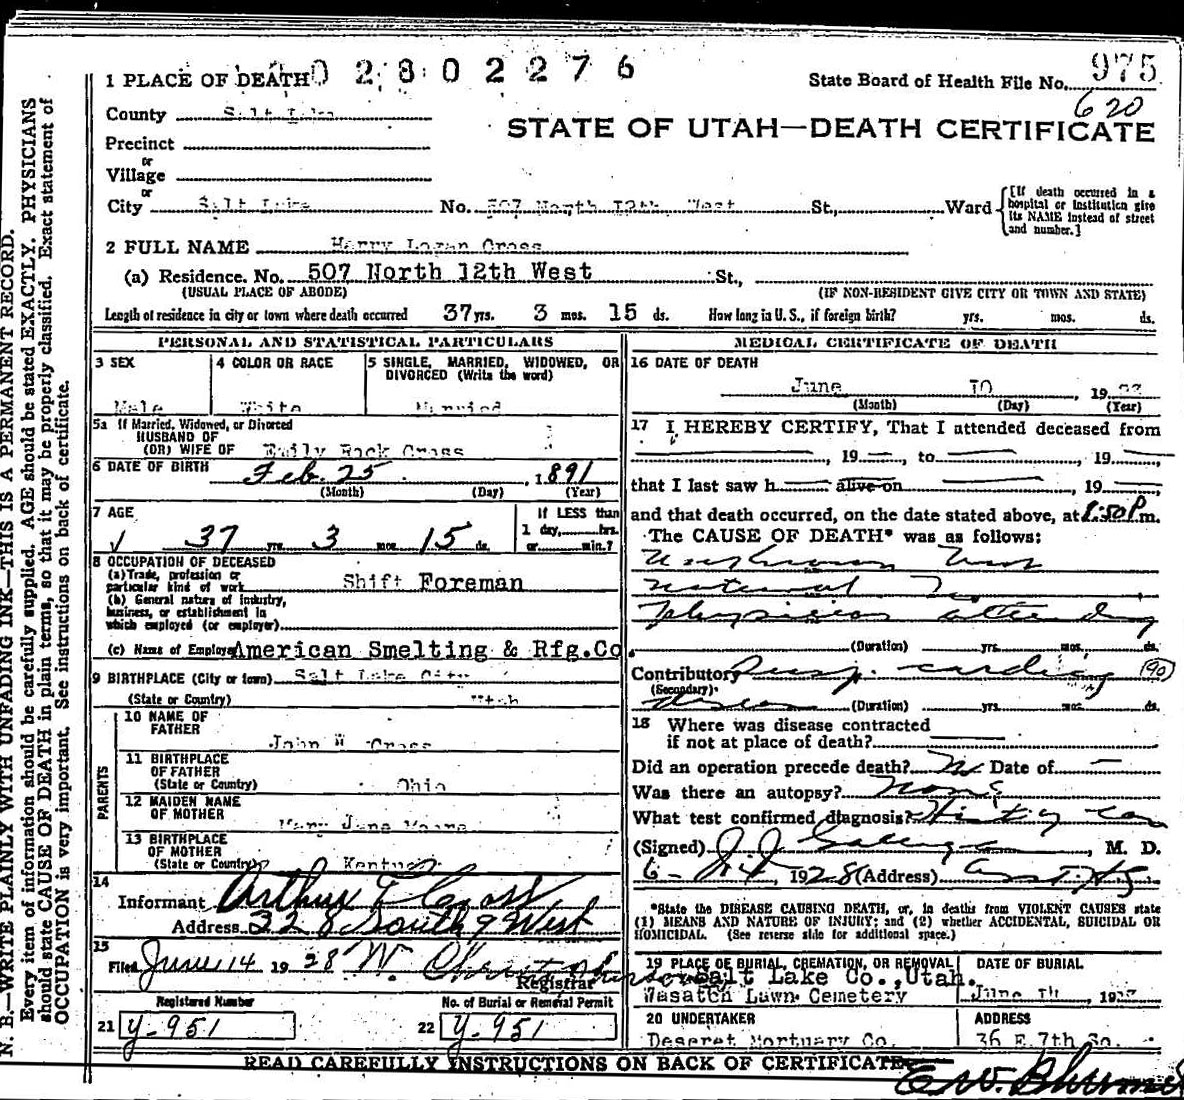 N. B.—WRITE PLAINLY WITH UNFADING INK—THIS IS A PERMANENT RECORD.
Every item of information should be carefully supplied. AGE should be stated EXACTLY. PHYSICIANS
should state CAUSE OF DEATH in plain terms, so that it may be properly classified. Exact statement of
OCCUPATION is very important. See instructions on back of certificate.
1 PLACE OF DEATH 02802276
State Board of Health File No. 975
620
County Salt Lake
STATE OF UTAH—DEATH CERTIFICATE
Precinct
or
Village
or
City Salt Lake No. 507 North 12th West St., Ward
[If death occurred in a
hospital or institution give
its NAME instead of street
and number.]
2 FULL NAME Harry Logan Cross
(a) Residence. No. 507 North 12th West St.,
(USUAL PLACE OF ABODE) (IF NON-RESIDENT GIVE CITY OR TOWN AND STATE)
Length of residence in city or town where death occurred 37 yrs. 3 mos. 15 ds. How long in U. S., if foreign birth? yrs. mos. ds.
PERSONAL AND STATISTICAL PARTICULARS
3 SEX
Male
4 COLOR OR RACE
White
5 SINGLE, MARRIED, WIDOWED, OR
DIVORCED (Write the word)
Married
5a If Married, Widowed, or Divorced
HUSBAND OF
(OR) WIFE OF Emily Cross
6 DATE OF BIRTH Feb. 25, 1891
(Month) (Day) (Year)
7 AGE
37 yrs. 3 mos. 15 ds.
If LESS than
1 day, hrs.
or min.?
8 OCCUPATION OF DECEASED
(a) Trade, profession or
particular kind of work Shift Foreman
(b) General nature of industry,
business, or establishment in
which employed (or employer)
(c) Name of Employer American Smelting & Rfg.Co.
9 BIRTHPLACE (City or town) Salt Lake City
(State or Country) Utah
PARENTS
10 NAME OF
FATHER
John W Cross
11 BIRTHPLACE
OF FATHER
(State or Country) Ohio
12 MAIDEN NAME
OF MOTHER
Mary Jane Moore
13 BIRTHPLACE
OF MOTHER
(State or Country) Kentucky
14
Informant Arthur F Cross
Address 328 South 9 West
15
Filed June 14 1928 W.
Registrar
Registered Number
21 y-951
No. of Burial or Removal Permit
22 y-951
MEDICAL CERTIFICATE OF DEATH
16 DATE OF DEATH
June 10, 19
(Month) (Day) (Year)
17 I HEREBY CERTIFY, That I attended deceased from
, 19 , to , 19
that I last saw h alive on , 19
and that death occurred, on the date stated above, at 1:50 P.m.
The CAUSE OF DEATH* was as follows:
Unknown
natural No
physician attending
(Duration) yrs. mos. ds.
Contributory cardiac (90)
(Secondary)
disease (Duration) yrs. mos. ds.
18 Where was disease contracted
if not at place of death?
Did an operation precede death? No Date of —
Was there an autopsy? None
What test confirmed diagnosis? History
(Signed) , M. D.
6- 1928 (Address)
*State the DISEASE CAUSING DEATH, or, in deaths from VIOLENT CAUSES state
(1) MEANS AND NATURE OF INJURY; and (2) whether ACCIDENTAL, SUICIDAL OR
HOMICIDAL. (See reverse side for additional space.)
19 PLACE OF BURIAL, CREMATION, OR REMOVAL
Salt Lake Co., Utah.
Wasatch Lawn Cemetery
DATE OF BURIAL
June 14, 19
20 UNDERTAKER
Deseret Mortuary Co.
ADDRESS
36 E. 7th So.
READ CAREFULLY INSTRUCTIONS ON BACK OF CERTIFICATE